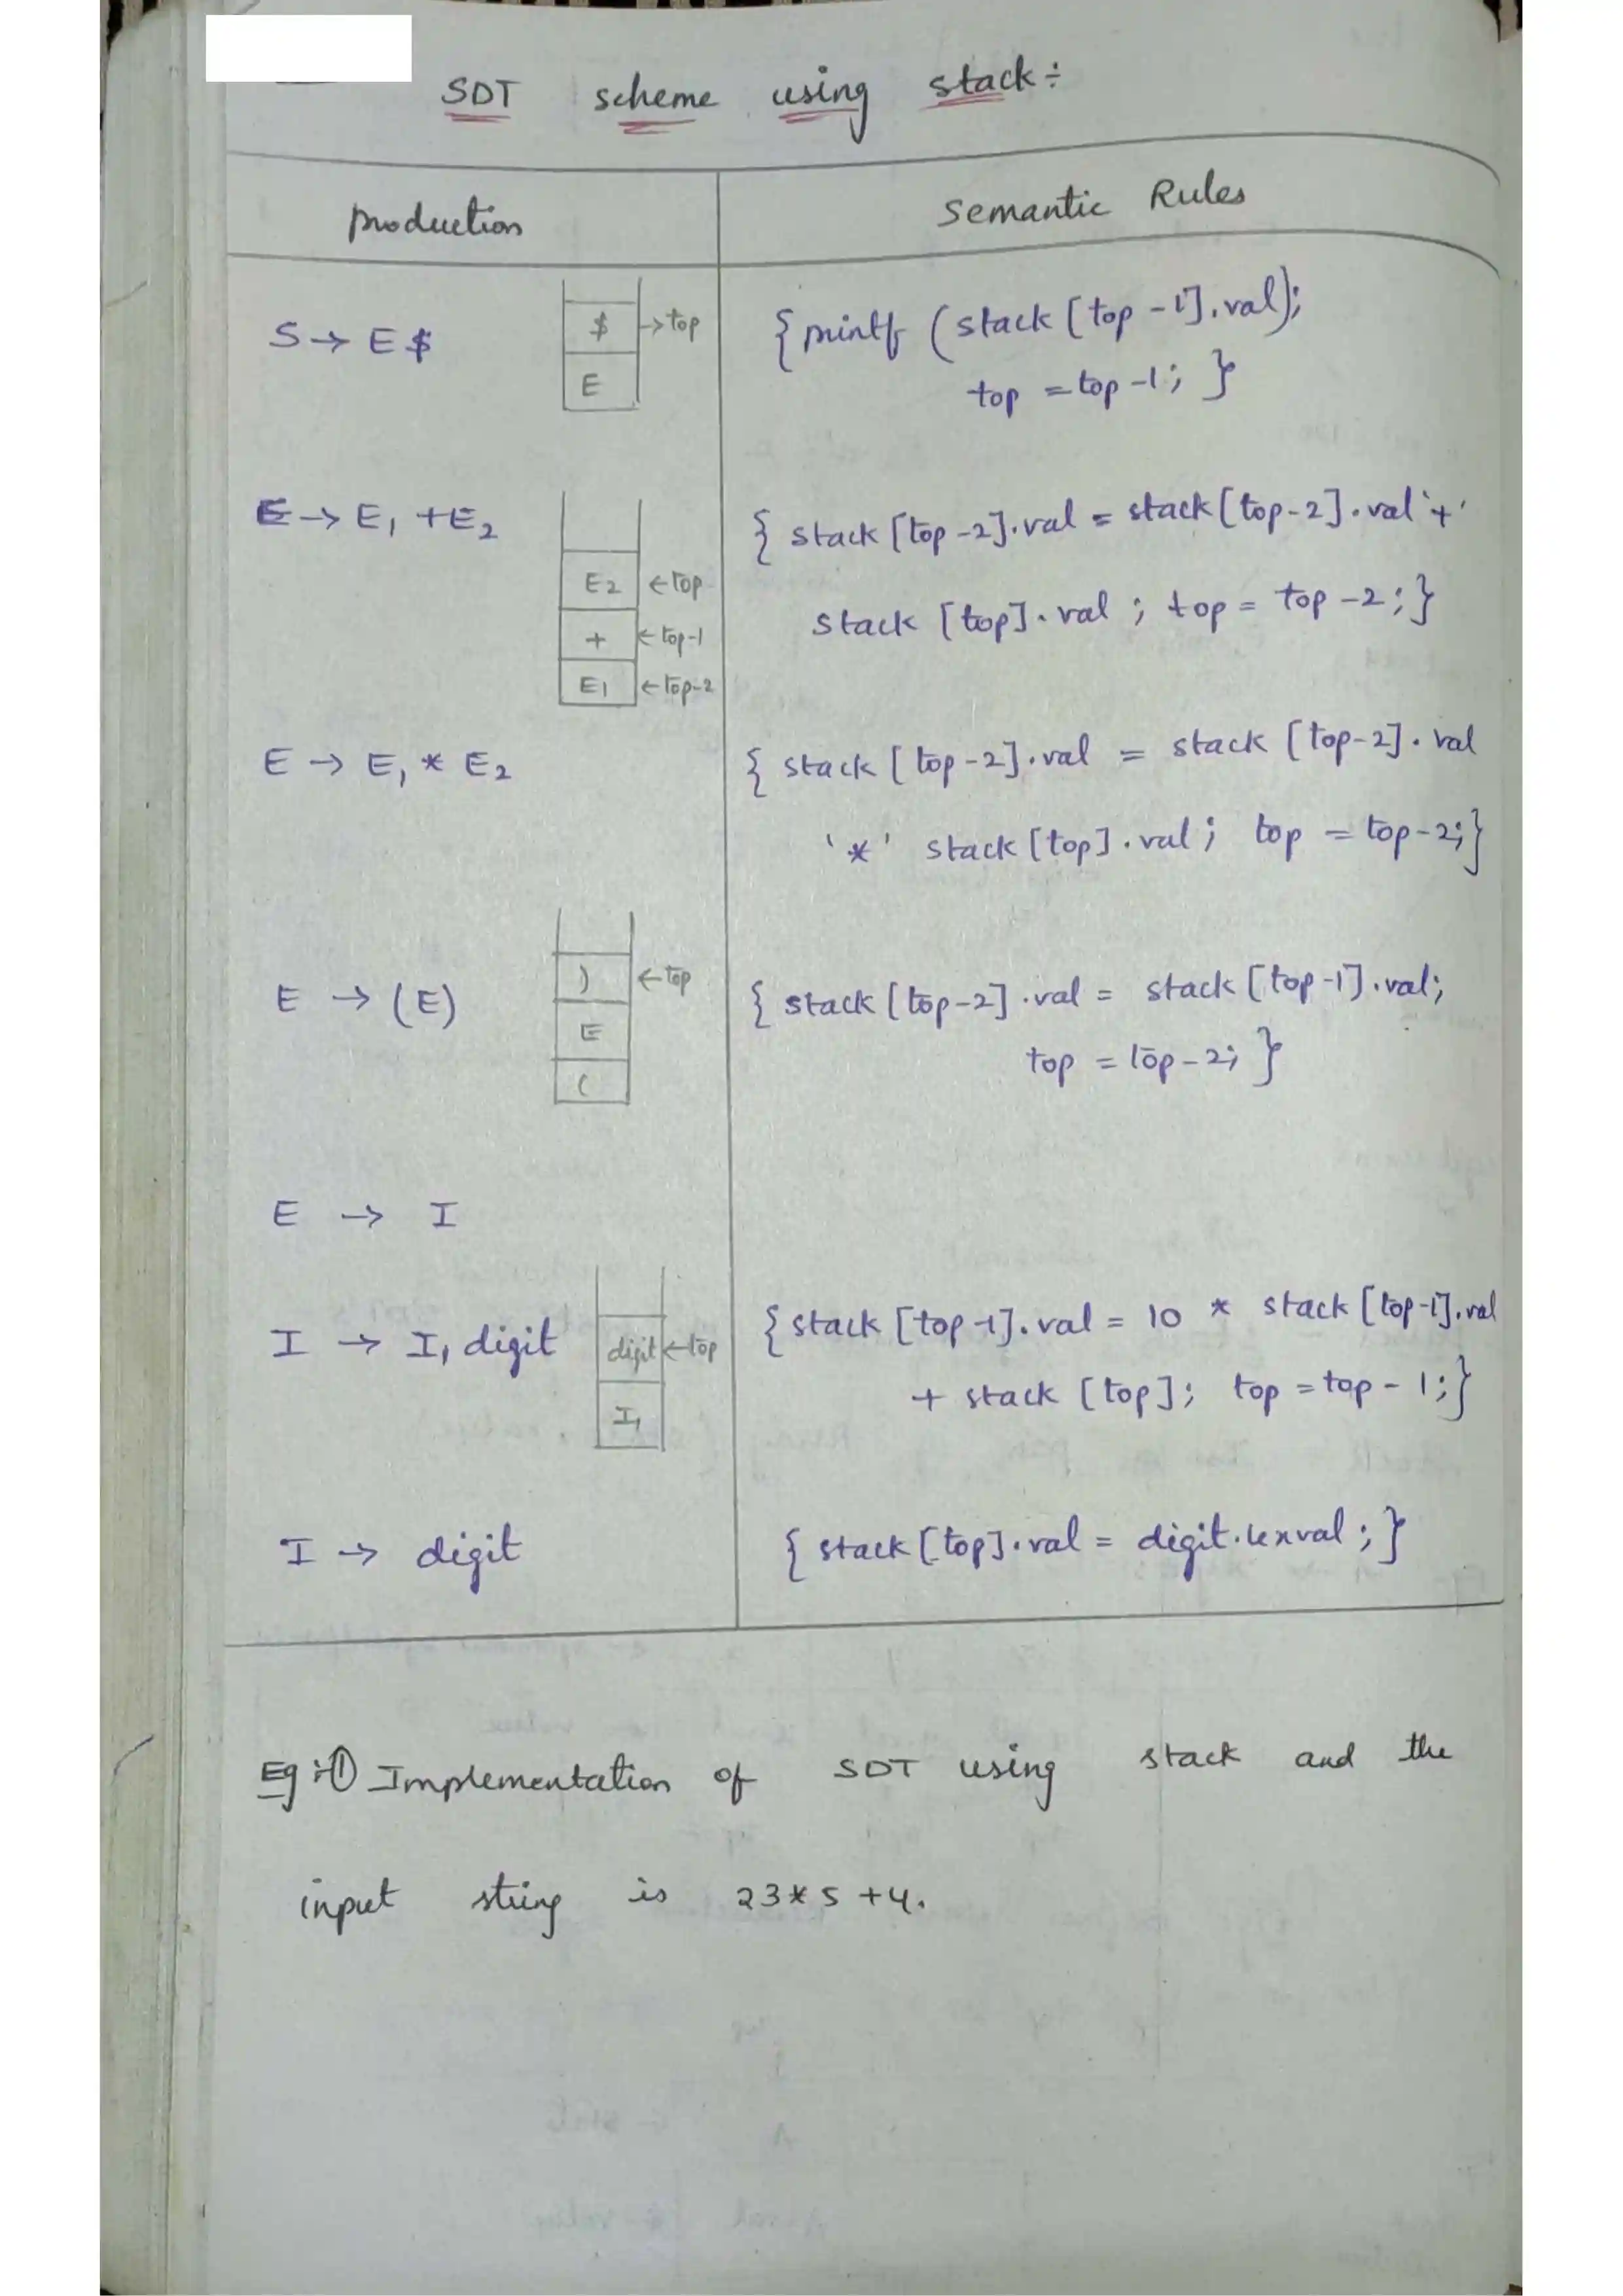 SDT scheme using stack :-
Production Semantic Rules
S → E $ $ →top { printf (stack [top -1].val);
E top = top -1; }
E → E1 + E2 { stack [top -2].val = stack [top-2].val '+'
E2 ←top
stack [top].val ; top = top -2; }
+ ←top-1
E1 ←top-2
E → E1 * E2 { stack [top -2].val = stack [top-2].val
'*' stack [top].val; top = top-2; }
) ←top
E → (E) { stack [top-2].val = stack [top-1].val;
E
top = top-2; }
(
E → I
I → I1 digit digit ←top { stack [top -1].val = 10 * stack [top-1].val
I1 + stack [top]; top = top - 1; }
I → digit { stack [top].val = digit.lexval ; }
Eg :- ① Implementation of SDT using stack and the
input string is 23*5+4.